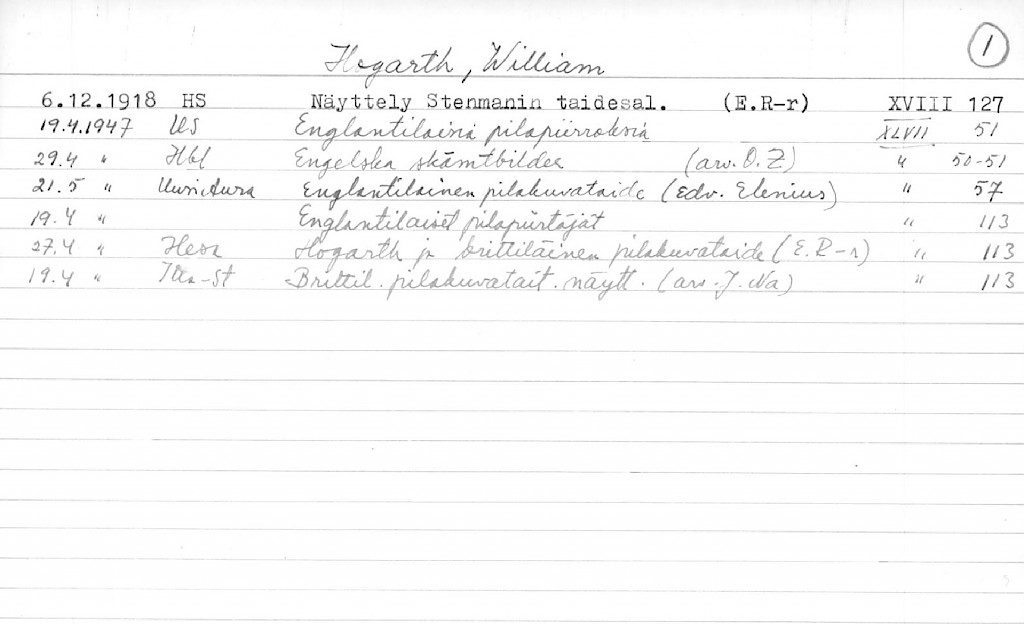 1
Hogarth, William
6.12.1918 HS Näyttely Stenmanin taidesal. (E.R-r) XVIII 127
19.4.1947 US Englantilaisia pilapiirroksia XLVII 51
29.4 " Hbl Engelska skämtbilder (arv. O.Z) " 50-51
21.5 " Uusi Aura Englantilainen pilakuvataide (Edv. Elenius) " 57
19.4 " Englantilaiset pilapiirtäjät " 113
27.4 " Hesa Hogarth ja brittiläinen pilakuvataide (E.R-r) " 113
19.4 " Brittil. pilakuvatait. näytt. (arv. J. Na) " 113